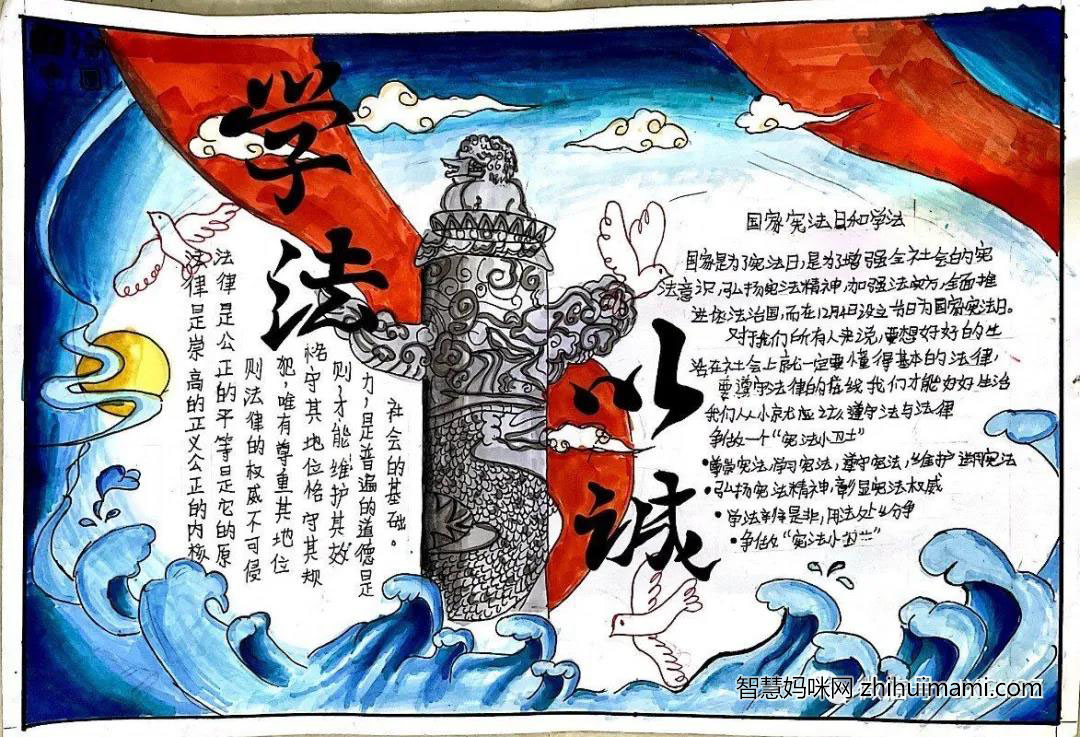 学法
以诚
法律是崇高的正义公正的内核
法律是公正的平等是它的原
则法律的权威不可侵
犯,唯有尊重其地位
恪守其地位恪守其规
则,才能维护其效
力,是普遍的道德是
社会的基础。
国家宪法日和学法
国家是为了宪法日,是为了增强全社会的宪
法意识,弘扬宪法精神,加强法实方,全面推
进依法治国,而在12月4日设立节日为国家宪法日。
对于我们所有人来说,要想好好的生
活在社会上就一定要懂得基本的法律,
要遵守法律的底线我们才能好好生活
我们人人 遵守法与法律
争做一个“宪法小卫士”
•尊崇宪法,学习宪法,遵守宪法,维护运用宪法
•弘扬宪法精神,彰显宪法权威
•学法辛得是非,用法处分争
•争做“宪法小卫士”
智慧妈咪网 zhihuimami.com